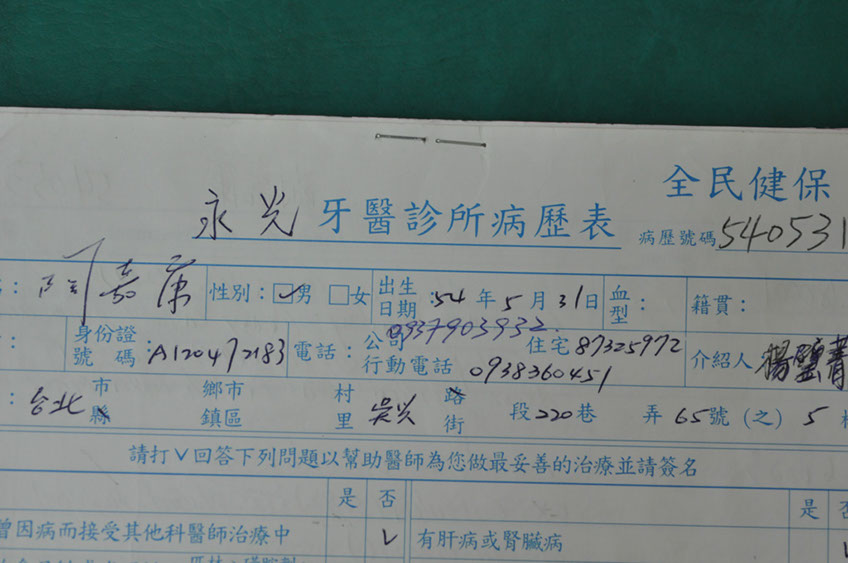 全民健保
永光牙醫診所病歷表
病歷號碼540531
：嘉康 性別：☑男 □女 出生日期：54年5月31日 血型： 籍貫：
身份證號碼：A120472183 電話：公司0937903932 住宅87325972 行動電話0938360451 介紹人 楊
：台北市縣 鄉市鎮區 村里 吳興路街 段220巷 弄65號(之)5
請打∨回答下列問題以幫助醫師為您做最妥善的治療並請簽名
是 否 是 否
曾因病而接受其他科醫師治療中 ∨ 有肝病或腎臟病